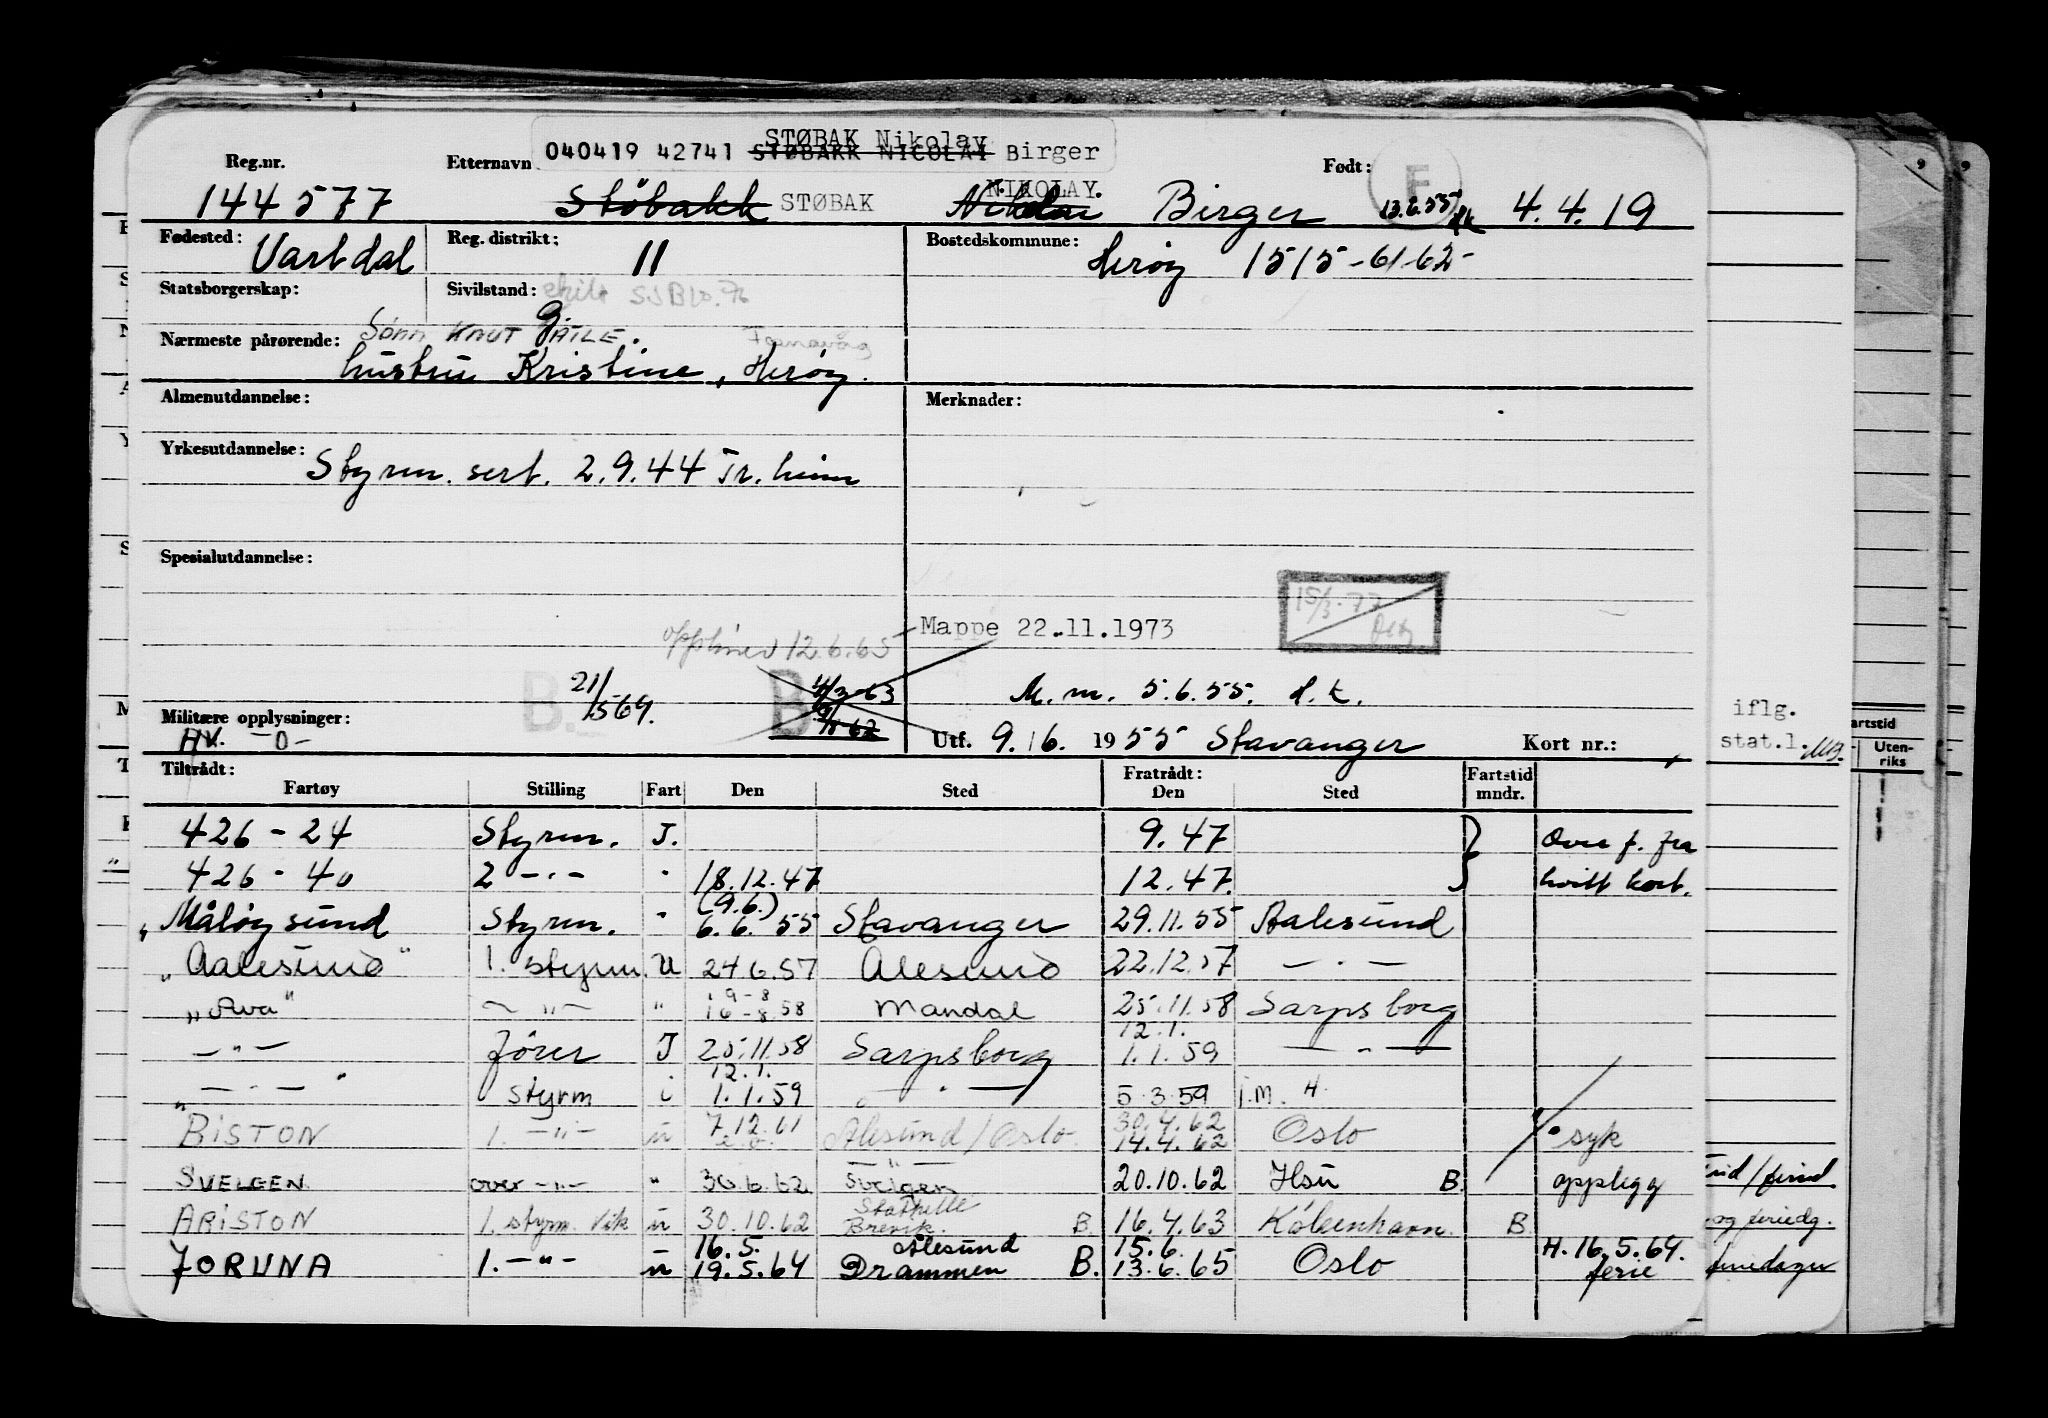 STØBAK Nikolay
040419 42741 STØBAKK NICOLAI Birger
Reg.nr. Etternavn Født: F
NIKOLAY.
144577 Støbakk STØBAK Nikolai Birger 13.6.55 4.4.19
Fødested: Vartdal Reg. distrikt: 11 Bostedskommune: Herøy 1515-61-62-
Statsborgerskap: Sivilstand: skilt g
Nærmeste pårørende: Sønn KNUT ATLE.
hustru Kristine, Herøy.
Almenutdannelse: Merknader:
Yrkesutdannelse: Styrm. sert. 2.9.44 Tr.heim
Spesialutdannelse:
15/3-77
Mappe 22.11.1973
12.6.65
B. 21/5 64. B 4/3-63
M.m. 5.6.55. H.k.
Militære opplysninger: HV. -0-
Utf. 9.6. 1955 Stavanger Kort nr.:
iflg.
stat.l.
artstid
Uten-
riks
Tiltrådt: Fratrådt: Fartstid
Fartøy Stilling Fart Den Sted Den Sted mndr.
426-24 Styrm. J. 9.47 Over f. fra
426-40 2 -"- " 18.12.47 12.47. hvitt kort.
(9.6.)
"Måløysund Styrm. " 6.6.55 Stavanger 29.11.55 Aalesund
"Aalesund" 1. styrm. U 24.6.57 Ålesund 22.12.57 -"-
19-8
"Ava" -"- " 16-8 58 Mandal 25.11.58 Sarpsborg
12.1.
-"- fører J 25.11.58 Sarpsborg 1.1.59 -"-
12.1.
-"- styrm i 1.1.59 -"- 5.3.59 i.M. H.
30.4.62
RISTON 1. -"- u 7.12.61 Ålesund/Oslo. 14.4.62 Oslo syk
SVELGEN over -"- " 30.6.62 Svelgen 20.10.62 Hsu B. opplegg
Stathelle
ARISTON 1. styrm. vik u 30.10.62 Brevik. B. 16.4.63 København. B.
16.5. Ålesund 15.6. H. 16.5.64.
JORUNA 1. -"- u 19.5.64 Drammen B. 13.6.65 Oslo ferie
og feriedg.
feriedager